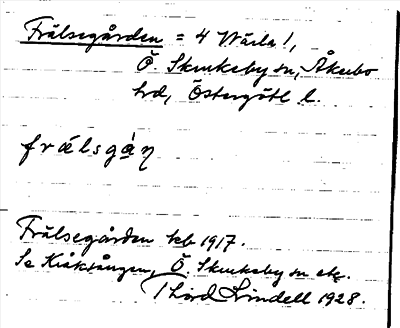 Frälsegården = 4 Wärla!,
Ö. Skrukeby sn, Åkerbo
hd, Östergötl l.
frälsgàɳ
Frälsegården kb 1917.
Se Kråksången, Ö. Skrukeby sn etc.
Thord Lindell 1928.